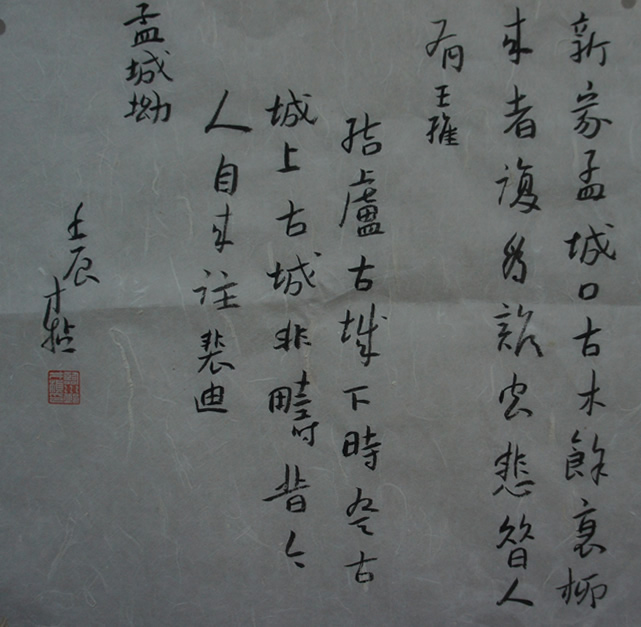 新家孟城口古木餘衰柳
来者復為誰空悲昔人
有王維
結廬古城下時登古
城上古城非疇昔今
人自来往裴迪
孟城坳
壬辰